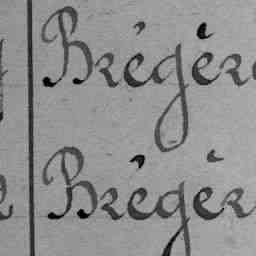 Brégèr
Brégèr